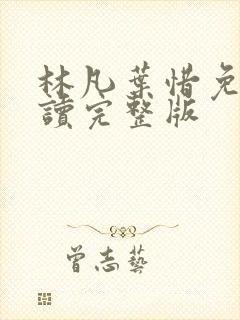 林凡葉惜免
讀完整版
曾志藝